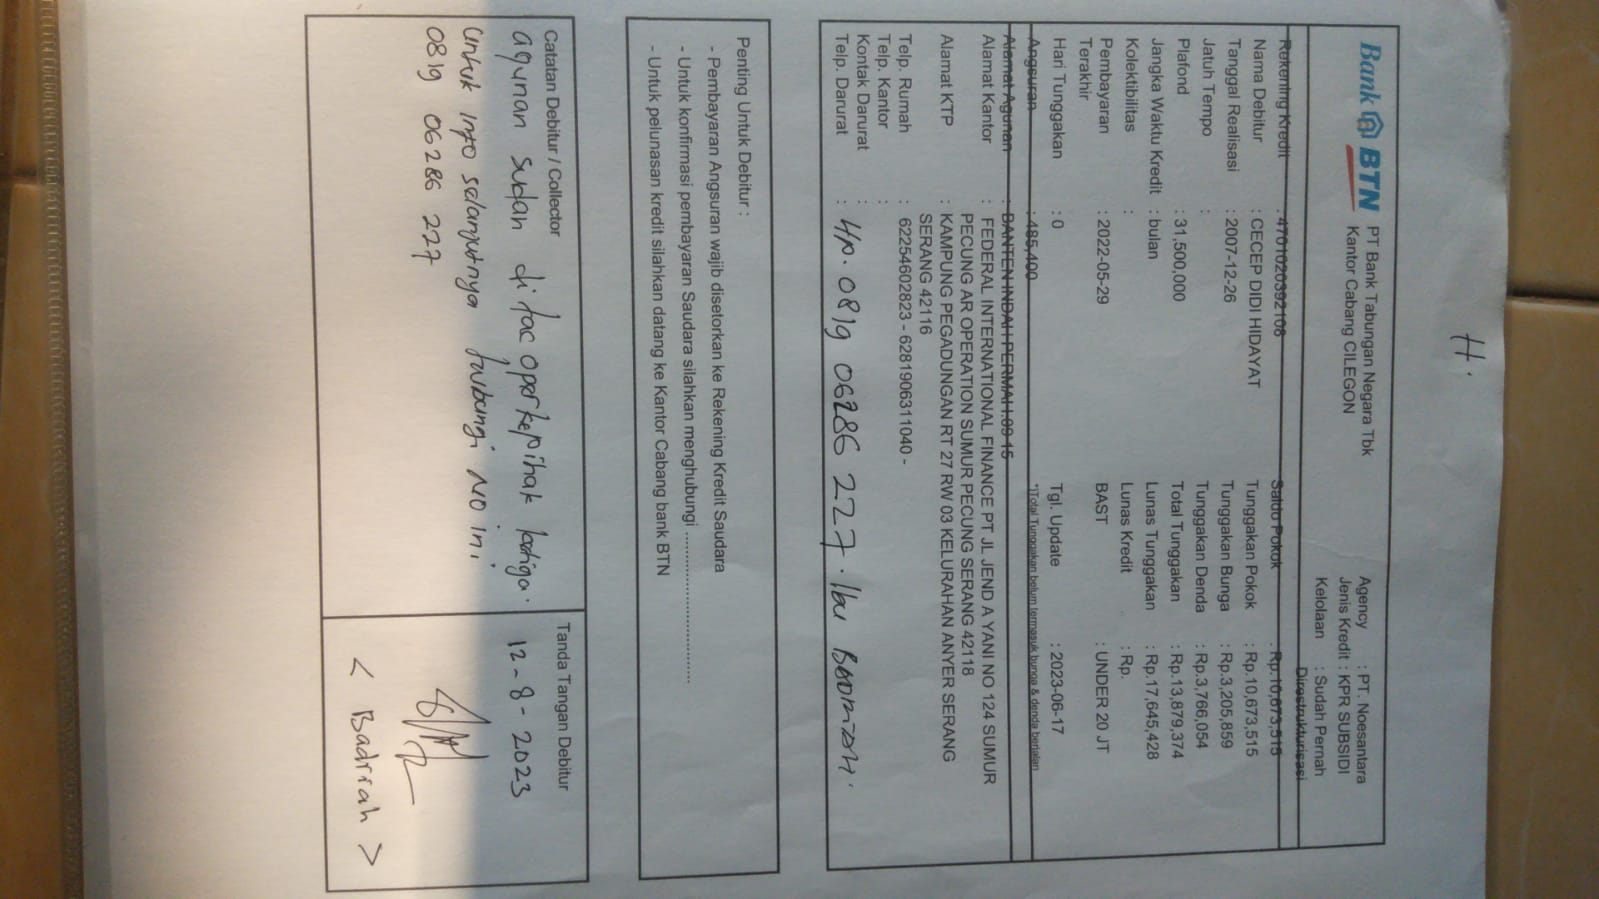 H.
Bank BTN
PT Bank Tabungan Negara Tbk
Kantor Cabang CILEGON
Agency : PT. Noesantara
Jenis Kredit : KPR SUBSIDI
Kelolaan : Sudah Pernah
Direstrukturisasi
Rekening Kredit : 4701020392108
Saldo Pokok : Rp.10,673,515
Nama Debitur : CECEP DIDI HIDAYAT
Tunggakan Pokok : Rp.10,673,515
Tanggal Realisasi : 2007-12-26
Tunggakan Bunga : Rp.3,205,859
Jatuh Tempo :
Tunggakan Denda : Rp.3,766,054
Plafond : 31,500,000
Total Tunggakan : Rp.13,879,374
Jangka Waktu Kredit : bulan
Lunas Tunggakan : Rp.17,645,428
Kolektibilitas :
Lunas Kredit : Rp.
Pembayaran : 2022-05-29
Terakhir
BAST : UNDER 20 JT
Hari Tunggakan : 0
Tgl. Update : 2023-06-17
Angsuran : 485,400
*)Total Tunggakan belum termasuk bunga & denda berjalan
Alamat Agunan : BANTEN INDAH PERMAI I.09 15
Alamat Kantor : FEDERAL INTERNATIONAL FINANCE PT JL JEND A YANI NO 124 SUMUR
PECUNG AR OPERATION SUMUR PECUNG SERANG 42118
Alamat KTP : KAMPUNG PEGADUNGAN RT 27 RW 03 KELURAHAN ANYER SERANG
SERANG 42116
Telp. Rumah : 62254602823 - 6281906311040 -
Telp. Kantor :
Kontak Darurat :
Telp. Darurat : Hp. 0819 06286 227. Ibu
Penting Untuk Debitur :
- Pembayaran Angsuran wajib disetorkan ke Rekening Kredit Saudara
- Untuk konfirmasi pembayaran Saudara silahkan menghubungi ..............................
- Untuk pelunasan kredit silahkan datang ke Kantor Cabang bank BTN
Catatan Debitur / Collector
agunan sudah di tac oper ke pihak ketiga.
Untuk info selanjutnya hubungi NO ini.
0819 06286 227
Tanda Tangan Debitur
12-8-2023
< Badriah >